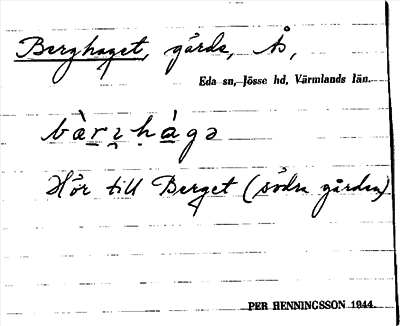 Berghaget, gårde, Ås,
Eda sn, Jösse hd, Värmlands län.
bàrɿhàgə
Hör till Berget (södra gården)
PER HENNINGSSON 1944.